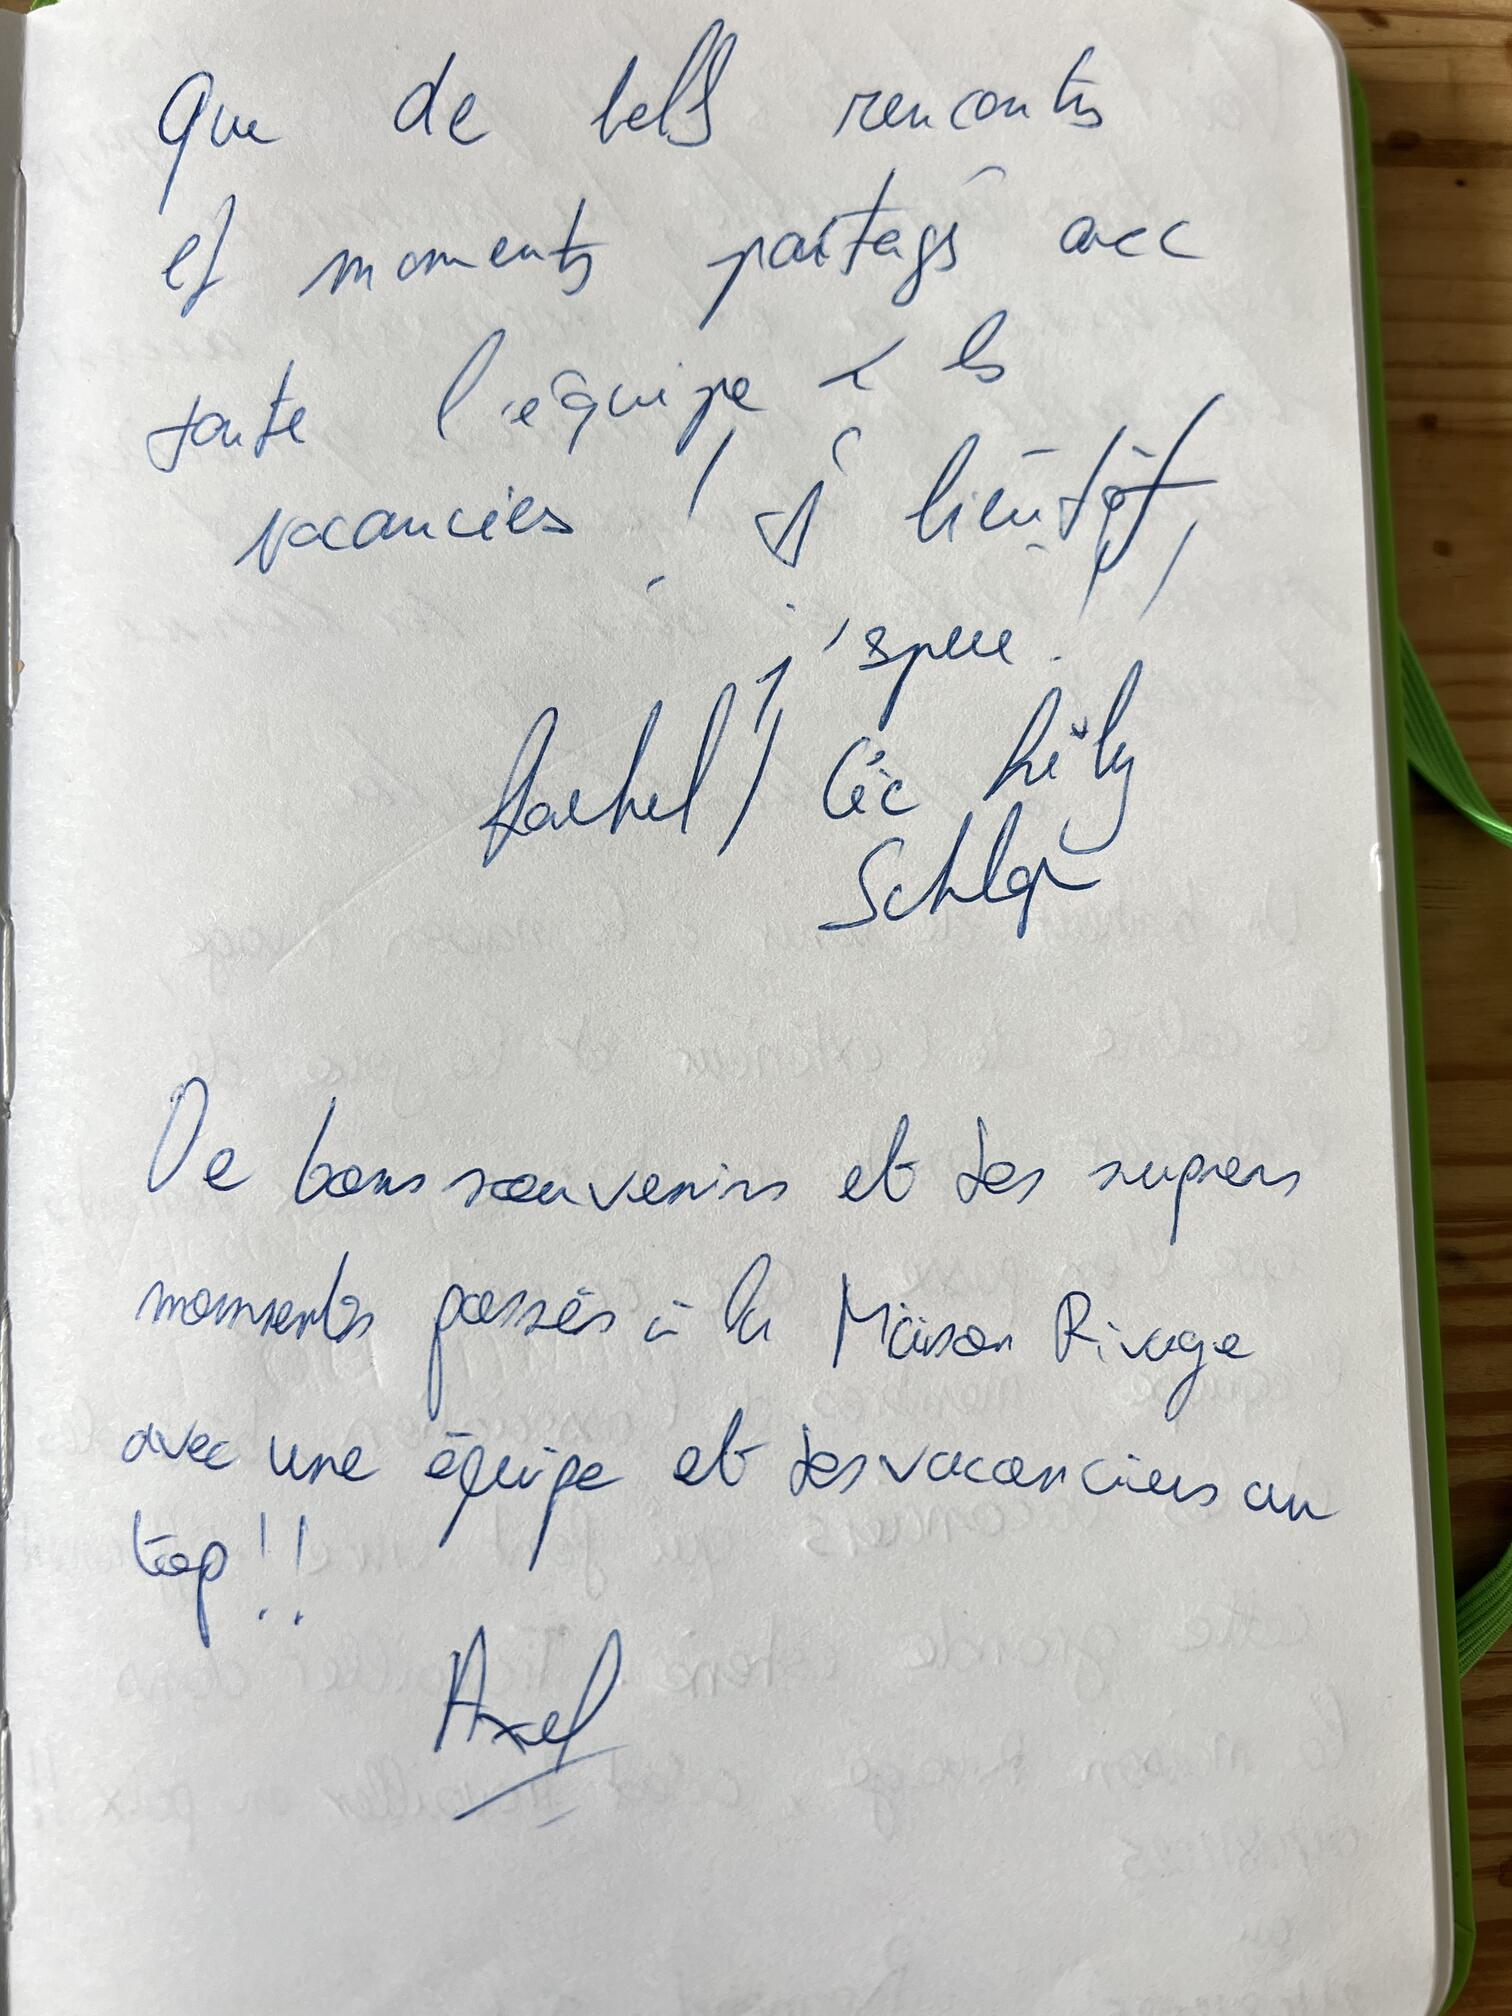 Que de belles rencontres
et moments partagés avec
toute l'équipe & les
vacanciers ! A bientôt,
j'espère !
Rachel /
De bons souvenirs et des supers
moments passés à la Maison Rivage
avec une équipe et des vacanciers au
top !!
Axel